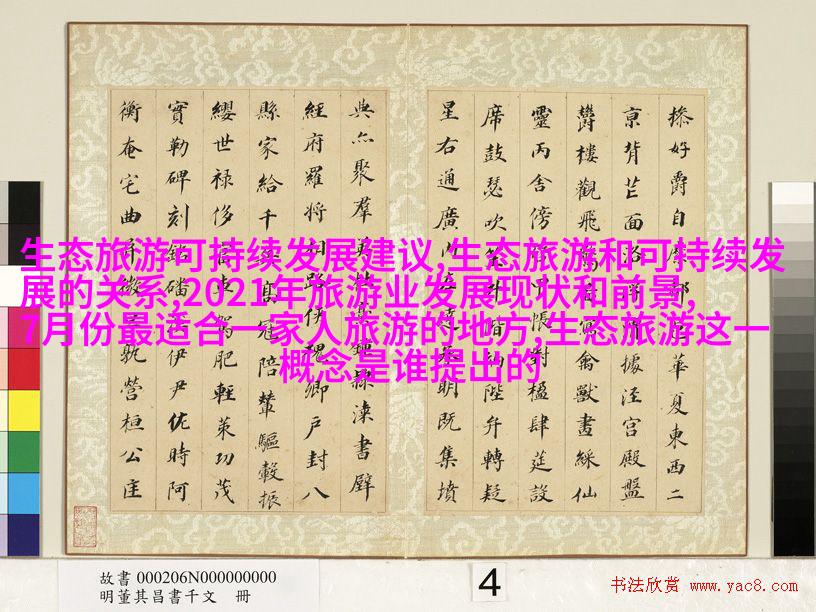 生态旅游可持续发展建议,生态旅游和可持续发
展的关系,2021年旅游业发展现状和前景,
7月份最适合一家人旅游的地方,生态旅游这一
概念是谁提出的
操好爵自縻都華夏東西二
京背芒面洛據涇宮殿盤
鬱樓觀飛驚寫禽獸畫綵仙
靈丙舍傍甲帳對楹肆筵設
席鼓瑟吹笙階納陛弁轉疑
星右通廣內明既集墳
典亦聚群英隸漆書壁
經府羅將相路俠槐卿戶封八
縣家給千兵高冠陪輦驅轂振
纓世祿侈富車駕肥輕策功茂
實勒碑刻銘磻伊尹佐時阿
衡奄宅曲阜微孰營桓公匡
故書 000206N000000000
明董其昌書千文 冊
4
书法欣赏 www.yac8.com